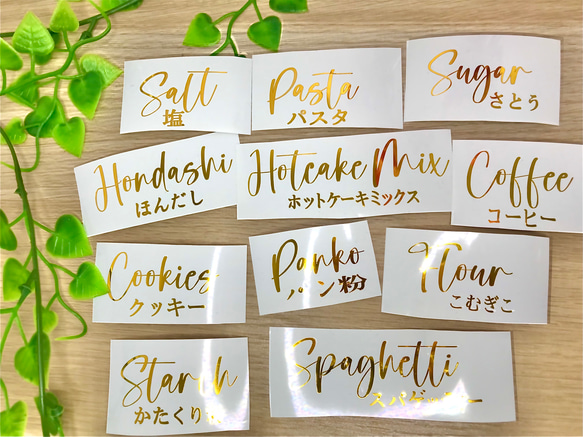 Salt
塩
Pasta
パスタ
Sugar
さとう
Hondashi
ほんだし
Hotcake Mix
ホットケーキミックス
Coffee
コーヒー
Cookies
クッキー
Panko
パン粉
Flour
こむぎこ
Starch
かたくり
Spaghetti